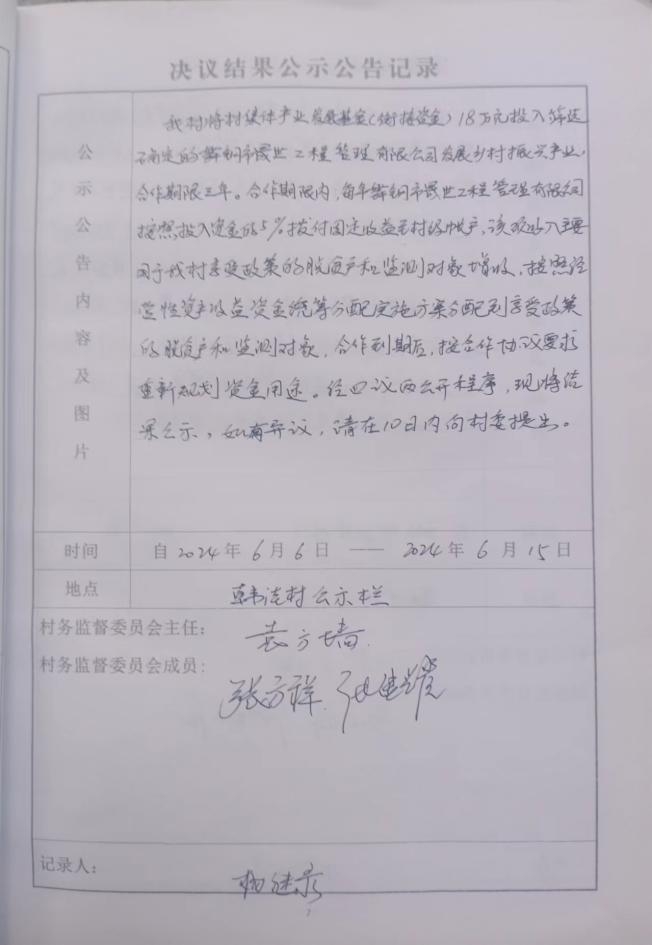 决议结果公示公告记录
公示公告内容及图片
我村将村集体产业发展基金(衔接资金)18万元投入筛选
确定的舞钢市晟世工程管理有限公司发展乡村振兴产业,
合作期限三年。合作期限内,每年舞钢市晟世工程管理有限公司
按照投入资金的5%拨付固定收益至村级帐户,该项收入主要
用于我村享受政策的脱贫户和监测对象增收,按照经
营性资产收益资金统筹分配实施方案分配到享受政策
的脱贫户和监测对象,合作到期后,按合作协议要求
重新规划资金用途。经四议两公开程序,现将结
果公示,如有异议,请在10日内向村委提出。
时间 自2024年6月6日 —— 2024年6月15日
地点 村公示栏
村务监督委员会主任: 袁方墙
村务监督委员会成员:
张方祥
记录人: 杨继录
7